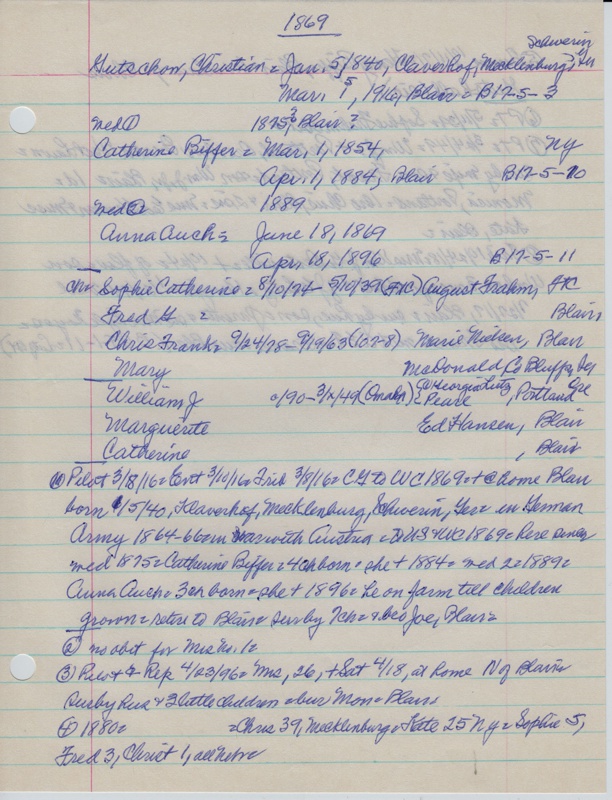 1869
Schwerin
Gutschow, Christian = Jan. 5, 1840, Claverhof, Mecklenburg, Ger
Mar. 1, 1916, Blair = B17-5-3
med ① 1875, Blair ?
Catherine Biffer = Mar. 1, 1854, NY
Apr. 1, 1884, Blair B17-5-10
med ② 1889
Anna Auch = June 18, 1869
Apr. 18, 1896 B17-5-11
chr Sophie Catherine = 8/10/74 - 5/10/39 (FTC) August Frahm, FTC
Fred G = Blair
Chris Frank = 9/24/78 - 9/19/63 (107-8) Marie Nielsen, Blair
Mary McDonald, Co Bluffs, Ia
William J 0/90 - 3/2/49 (Omaha) Georgia Lutz, Pearl, Portland Ore
Marguerite Ed Hansen, Blair
Catherine , Blair
① Pilot 3/8/16 = Ent 3/10/16 = Trib 3/8/16 = C Y to WC 1869 = + @ home Blair
born 1/5/40, Klaverhof, Mecklenburg, Schwerin, Ger = in German
Army 1864-66 = in war with Austria = to US + WC 1869 = here since
med 1875 = Catherine Biffer = 4 ch born = she + 1884 = med 2 = 1889 =
Anna Auch = 3 ch born = she + 1896 = he on farm till children
grown = retire to Blair = surv by 7 ch = & bro Joe, Blair =
② no obit for Mrs No. 1 =
③ Pilot + Rep 4/23/96 = Mrs, 26, + Sat 4/18, at home N of Blair =
surv by hus + 3 little children = bur Mon = Blair
④ 1880 = = Chris 39, Mecklenburg = Kate 25 NY = Sophie 5,
Fred 3, Christ 1, all Nebr =